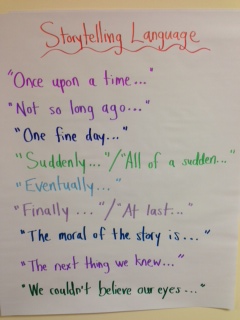 Storytelling Language
"Once upon a time..."
"Not so long ago..."
"One fine day..."
"Suddenly..."/"All of a sudden..."
"Eventually..."
"Finally ..."/"At last..."
"The moral of the story is... "
"The next thing we knew..."
"We couldn't believe our eyes... "